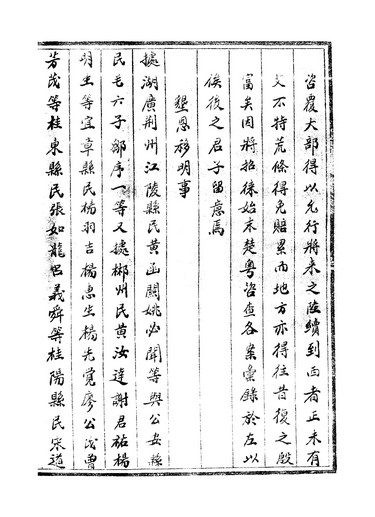 咨覆大部得以允行將来之陸續到西者正未有
艾不特荒條得免賠累而地方亦得往昔復之殷
富矣因將招徠始末楚粤咨查各案彙錄於左以
俟後之君子留意焉
懇恩移明事
據湖廣荆州江陵縣民黄函關姚必聞等與公安縣
民毛六子鄒序一等又據郴州民黄汝達謝君祐楊
明生等宜章縣民楊羽吉楊惠生楊先覺廖公茂曾
芳茂等桂東縣民張如龍呂義舜等桂陽縣民宋道